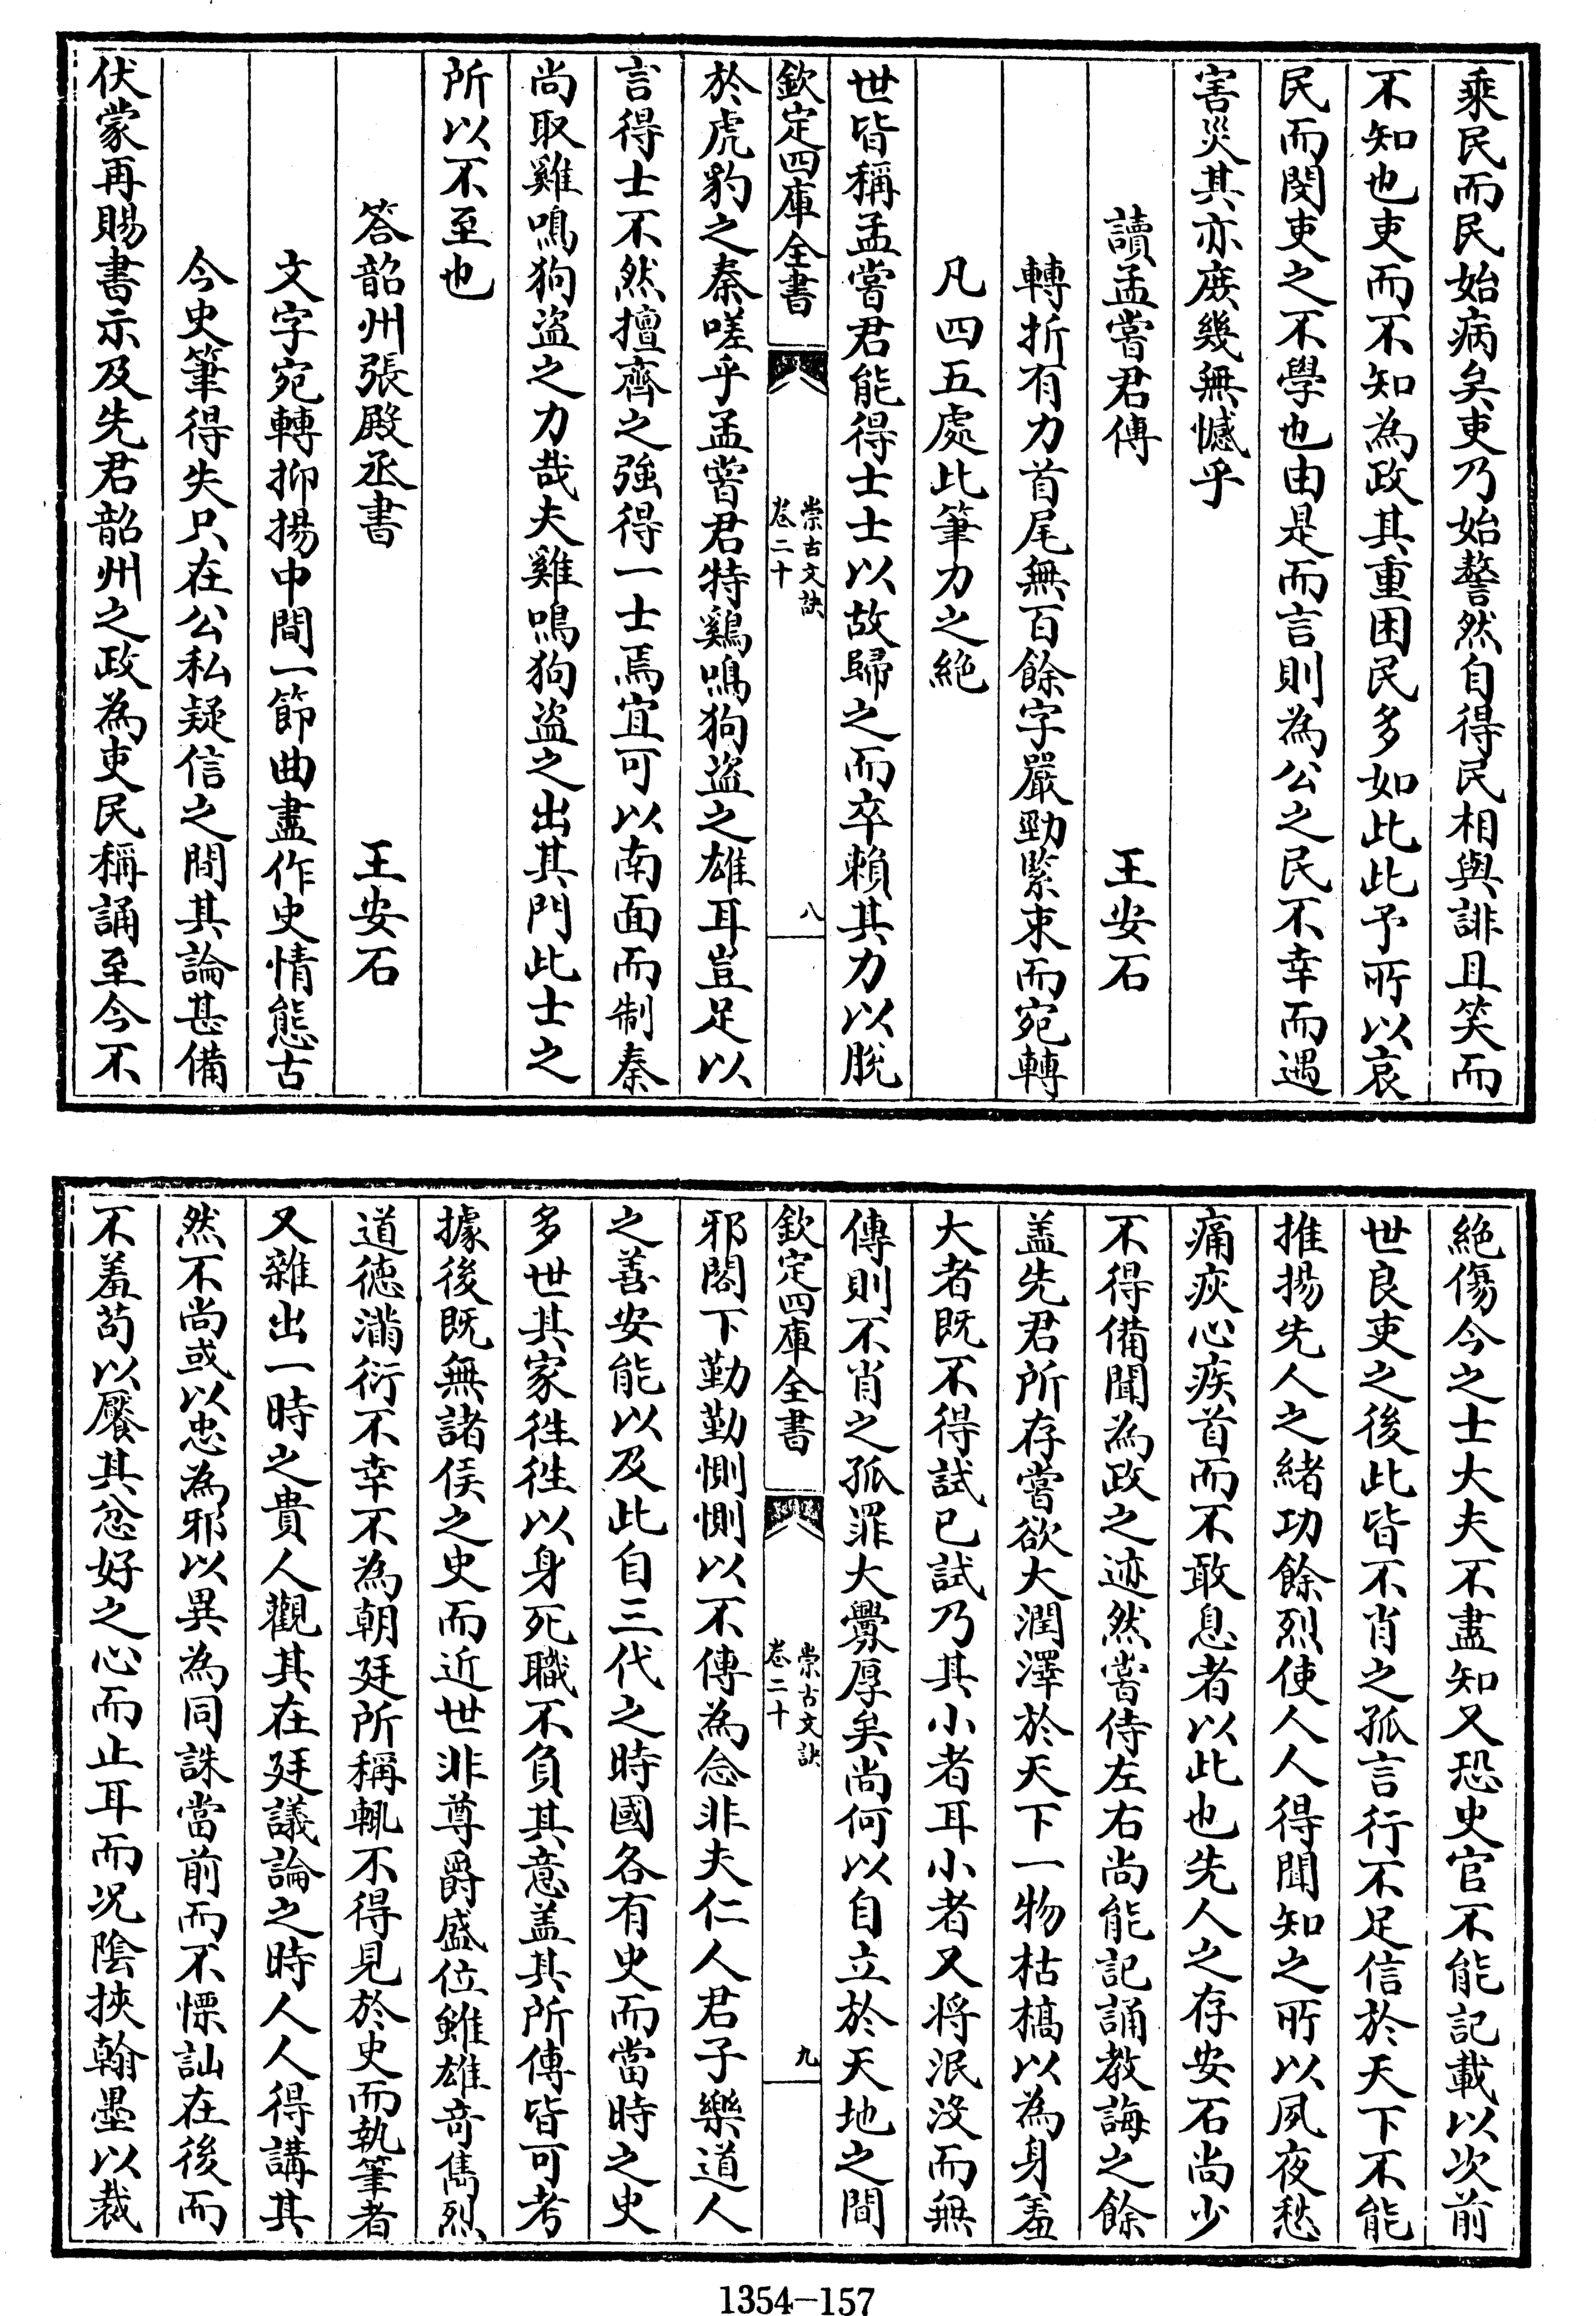 乘民而民始病矣吏乃始謷然自得民相與誹且笑而
不知也吏而不知為政其重困民多如此此予所以哀
民而閔吏之不學也由是而言則為公之民不幸而遇
害災其亦庻幾無憾乎
讀孟嘗君傳 王安石
轉折有力首尾無百餘字嚴勁緊束而宛轉
凡四五處此筆力之絶
世皆稱孟嘗君能得士士以故歸之而卒賴其力以脫
欽定四庫全書 崇古文訣 卷二十 八
於虎豹之秦嗟乎孟嘗君特鷄鳴狗盜之雄耳豈足以
言得士不然擅齊之強得一士焉宜可以南面而制秦
尚取雞鳴狗盜之力哉夫雞鳴狗盜之出其門此士之
所以不至也
答韶州張殿丞書 王安石
文字宛轉抑揚中間一節曲盡作史情態古
今史筆得失只在公私疑信之間其論甚備
伏蒙再賜書示及先君韶州之政為吏民稱誦至今不
絶傷今之士大夫不盡知又恐史官不能記載以次前
世良吏之後此皆不肖之孤言行不足信於天下不能
推揚先人之緒功餘烈使人人得聞知之所以夙夜愁
痛疚心疾首而不敢息者以此也先人之存安石尚少
不得備聞為政之迹然嘗侍左右尚能記誦教誨之餘
盖先君所存嘗欲大潤澤於天下一物枯槁以為身羞
大者既不得試已試乃其小者耳小者又将泯沒而無
傳則不肖之孤罪大釁厚矣尚何以自立於天地之間
欽定四庫全書 崇古文訣 卷二十 九
邪閣下勤勤惻惻以不傳為念非夫仁人君子樂道人
之善安能以及此自三代之時國各有史而當時之史
多世其家徃徃以身死職不負其意盖其所傳皆可考
據後既無諸侯之史而近世非尊爵盛位雖雄竒儁烈
道德滿衍不幸不為朝廷所稱輒不得見於史而執筆者
又雜出一時之貴人觀其在廷議論之時人人得講其
然不尚或以忠為邪以異為同誅當前而不慄訕在後而
不羞苟以饜其忿好之心而止耳而况隂挾翰墨以裁
1354—157